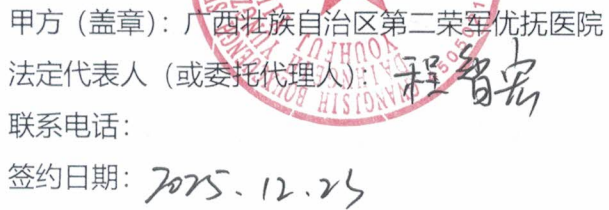 甲方（盖章）：广西壮族自治区第二荣军优抚医院
法定代表人（或委托代理人）程智宏
联系电话：
签约日期：2025.12.25